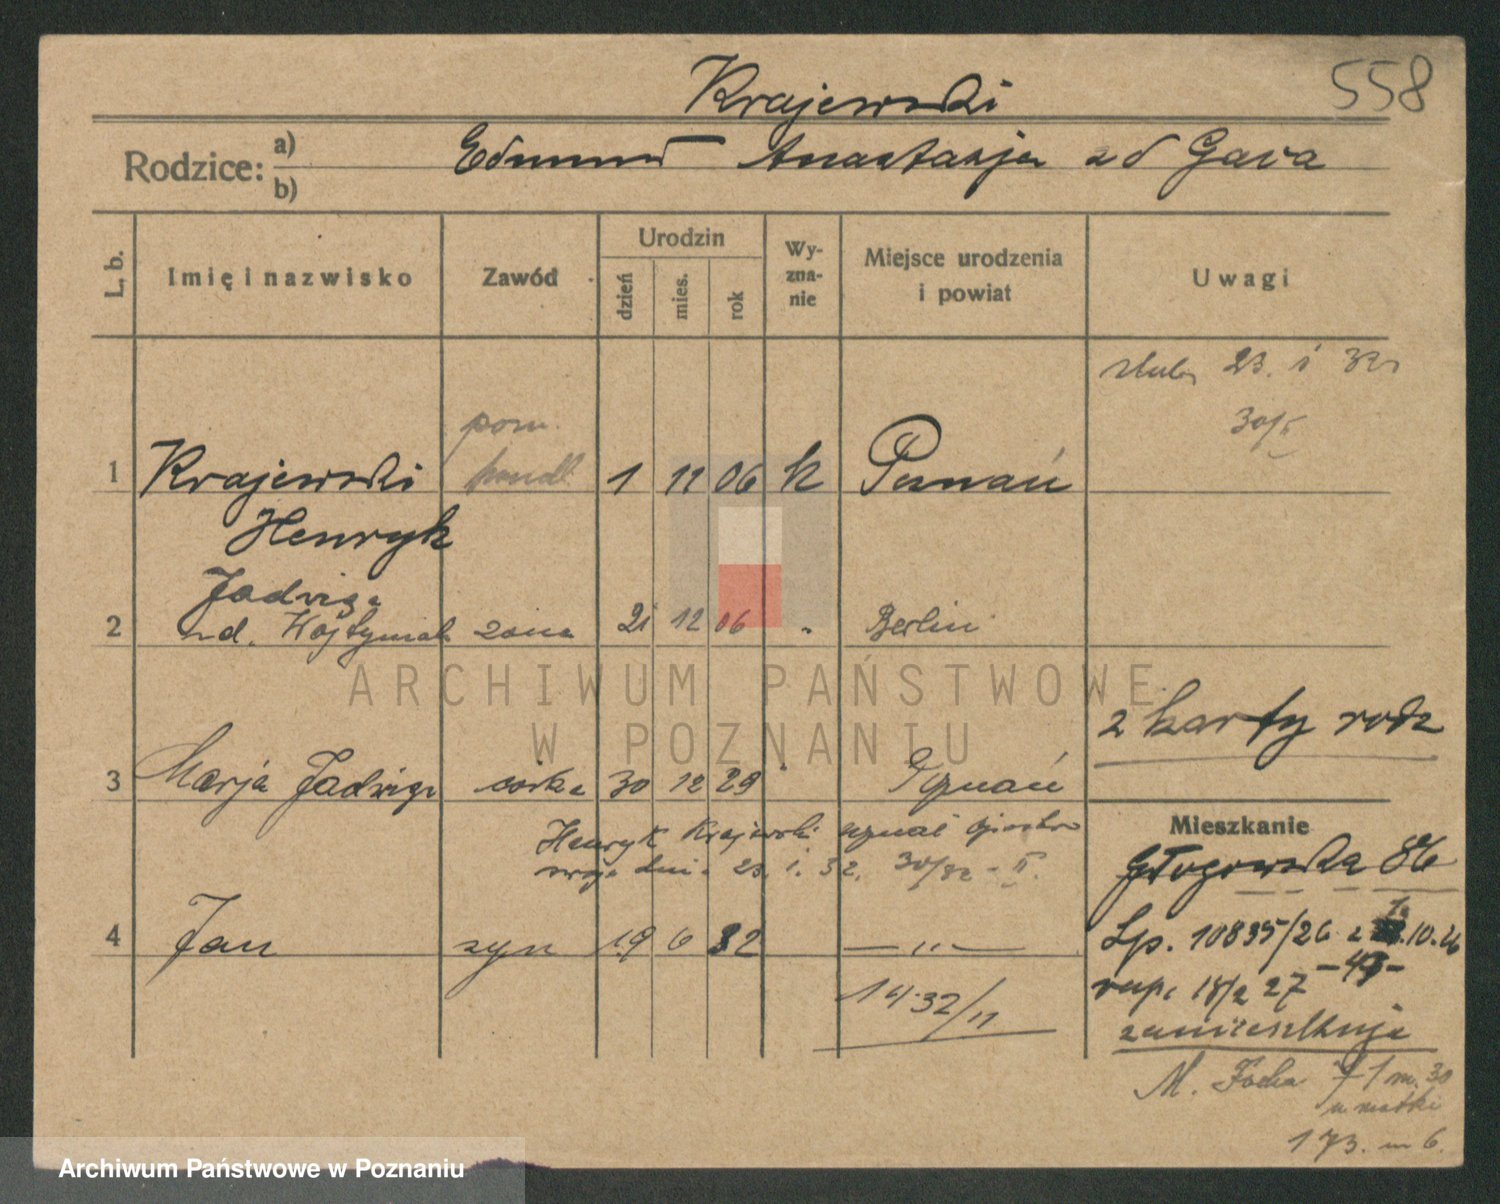 558
Krajewski
Rodzice: a) b)
Edmund Anastazja z d Gava
L. b.
Imię i nazwisko
Zawód
Urodzin
dzień
mies.
rok
Wy-
zna-
nie
Miejsce urodzenia
i powiat
Uwagi
ślub 23. i 32
30/II
pom.
handl
1 Krajewski 1 11 06 k Poznań
Henryk
Jadwiga
2 z d. Wojtyniak żona 21 12 06 " Berlin
z karty rodz
3 Marja Jadwiga córka 30 12 29 " Poznań
Henryk Krajewski uznał ojcostwo
swoje dnia 23. i. 32. 30/32 - II.
Mieszkanie
Głogowska 86
4 Jan syn 19 6 32 — " —
Lp. 10835/26 z 10.26
18/2 27
1432/11
zamieszkuje
M. Focha 71 m. 30
u matki
173. m 6.
ARCHIWUM PAŃSTWOWE
W POZNANIU
Archiwum Państwowe w Poznaniu